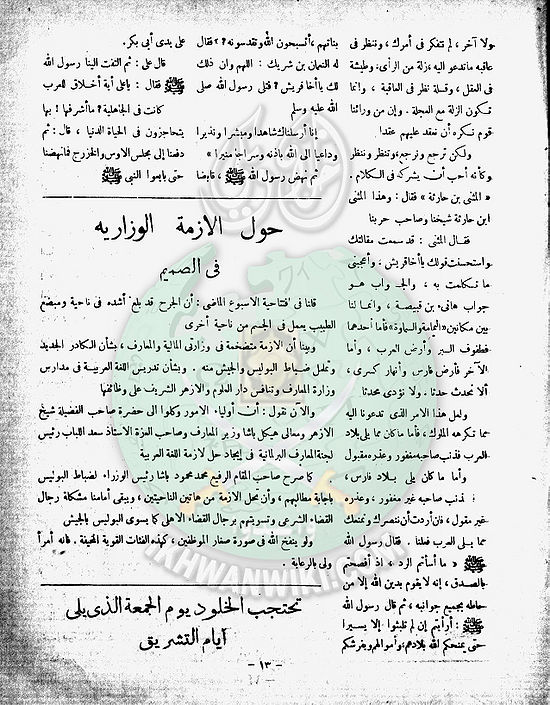 مولا آخر ، لم تتفكر فى أمرك ، وتنظر فى
عاقبه ماتدعو اليه ، زلة من الرأى ، وطيشة
فى العقل ، وقلة نظر فى العاقبة ، وانما
تكون الزلة مع العجلة . وإن من ورائنا
قوم نكره أن نعقد عليهم عقدا
ولكن ترجع ونرجع ، وتنظر وننظر
وكأنه أحب أن يشركه فى الكلام .
« المثنى بن حارثة » فقال : وهذا المثنى
ابن حارثة شيخنا وصاحب حربنا
فقال المثنى : قد سمعت مقالتك
واستحسنت قولك ياأخا قريش ، وأعجبنى
ما تكلمت به ، والجواب هو
جواب هانىء بن قبيصة ، وانما لنا
بين مكانين « اليمامة والسماوة » فأما أحدها
فطفوف البر وأرض العرب ، وأما
الآخر فأرض فارس وأنهار كسرى ،
ألا تحدث حدثا . ولا نؤدى محدثا
ولعل هذا الامر الذى تدعونا اليه
مما تكرهه الملوك ، فأما ماكان مما يلى بلاد
العرب فذنب صاحبه مغفور وعذره مقبول
وأما ما كان يلى بلاد فارس ،
فذنب صاحبه غير مغفور ، وعذره
غير مقبول ، فان أردت أن ننصرك ونمنعك
مما يلى العرب فعلنا . فقال رسول الله
ﷺ « ما أسأتم الرد » اذ أفصحتم
بالصدق ، إنه لا يقوم بدين الله إلا من
حاطه بجميع جوانبه ، ثم قال رسول الله
ﷺ : أرأيتم إن لم تلبثوا إلا يسيرا
حتى يمنحكم الله بلادهم ، وأموالهم ويفرشكم
بناتهم ، أتسبحون الله وتقدسونه ? » فقال
له النعمان بن شريك : اللهم وان ذلك
لك ياأخا قريش ? فتلى رسول الله صلى
الله عليه وسلم
إنا أرسلناك شاهدا ومبشرا ونذيرا
وداعيا الى الله باذنه وسراجا منيرا »
ثم نهض رسول الله ﷺ ، قابضا
على يدى أبى بكر .
قال على : ثم التفت الينا رسول الله
ﷺ فقال : ياعلى أية أخلاق للعرب
كانت فى الجاهلية ? ماأشرفها ! بها
يتحاجزون فى الحياة الدنيا ، قال : ثم
دفعنا إلى مجلس الاوس والخزرج فما نهضنا
حتى بايعوا النبى ﷺ
حول الازمة الوزاريه
فى الصميم
قلنا فى افتتاحية الاسبوع الماضى : أن الجرح قد بلغ أشده فى ناحية ومبضع
الطبيب يعمل فى الجسم من ناحية أخرى
وبينا أن الازمة متضخمة فى وزارتى المالية والمعارف ، بشأن الكادر الجديد
وتململ ضباط البوليس والجيش منه . وبشأن تدريس اللغة العربية فى مدارس
وزارة المعارف وتنافس دار العلوم والازهر الشريف على وظائفها
والآن نقول : أن أولياء الامور وكلوا الى حضرة صاحب الفضيلة شيخ
الازهر ومعالى هيكل باشا وزير المعارف وصاحب العزة الاستاذ سعد اللبان رئيس
لجنة المعارف البرلمانية فى إيجاد حل لازمة اللغة العربية
كما صرح صاحب المقام الرفيع محمد محمود باشا رئيس الوزراء لضباط البوليس
باجابة مطالبهم ، وأن محل الازمة من هاتين الناحيتين ، ويبقى أمامنا مشكلة رجال
القضاء الشرعى وتسويتهم برجال القضاء الاهلى كما يسوى البوليس بالجيش
ولو ينفخ الله فى صورة صغار الموظفين ، كهذه الفئات القوية المخيفة . فانه أمرأ
ولى بالرعاية .
تحتجب الخلود يوم الجمعة الذى يلى
أيام التشريق
- ١٣ -
IKHWANWIKI.COM